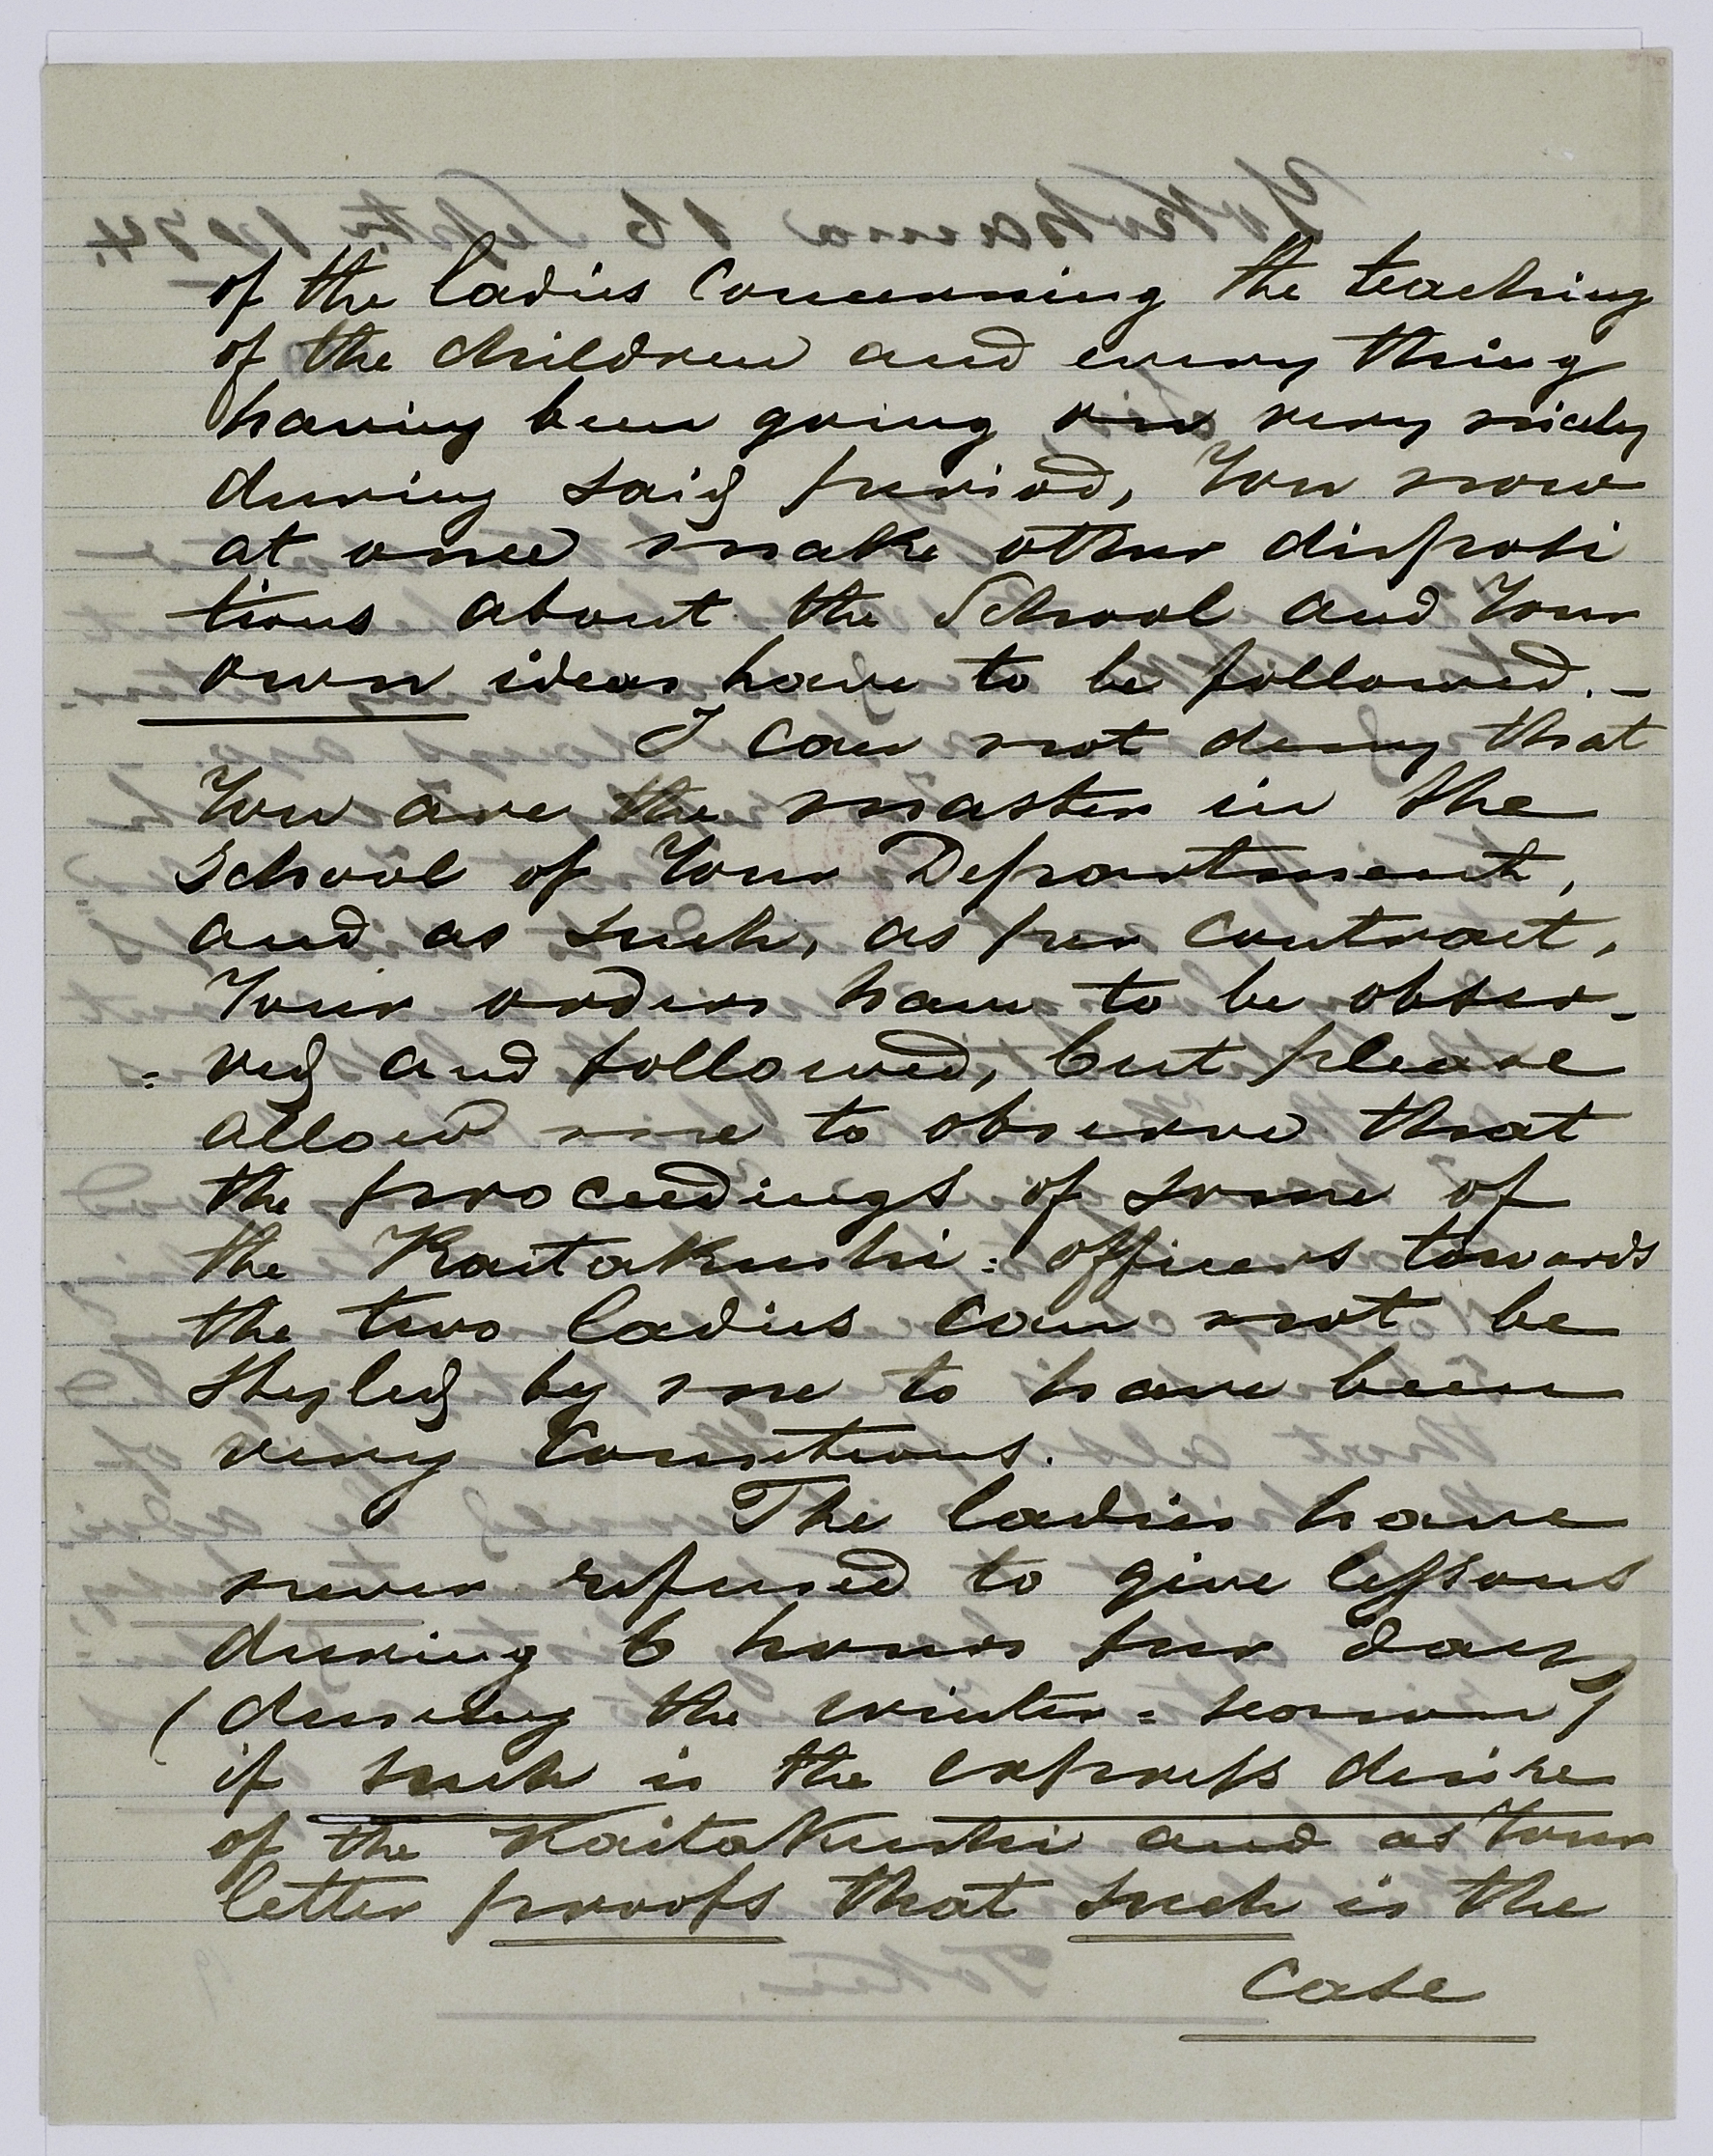 of the ladies concerning the teaching
of the children and every thing
having been going on very nicely
during said period, You now
at once make other disposi
tions about the School and Your
own ideas have to be followed. –
I can not deny that
You are the master in the
School of Your Department,
and as such, as per contract,
Your orders have to be obser –
= ved and followed, but please
allow me to observe that
the proceedings of some of
the Kaitakushi = officers towards
the two ladies can not be
styled by me to have been
very courteous.
The ladies have
never refused to give lessons
during 6 hours per day
(during the winter = season)
if such is the express desire
of the Kaitakushi and as Your
letter proofs that such is the
case